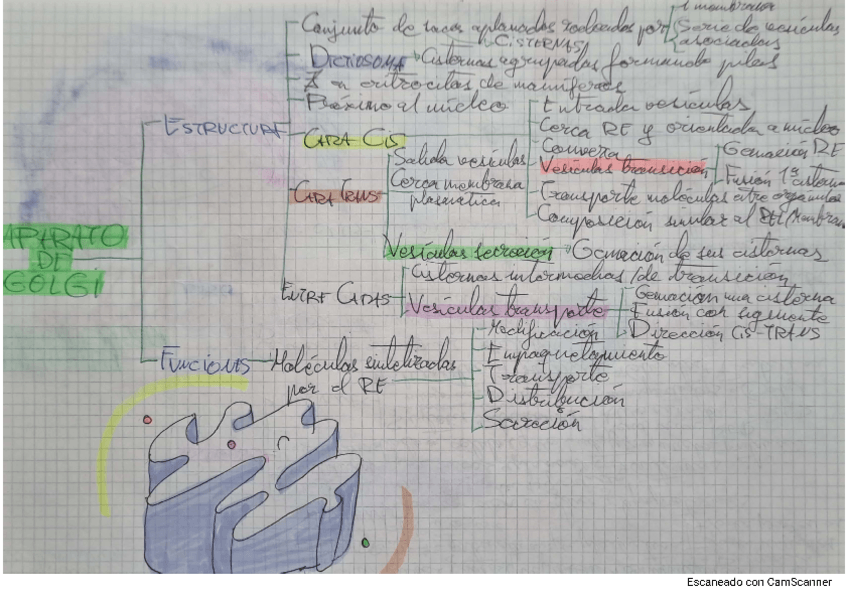 1 membrana
Conjunto de sacos aplanados rodeados por
Serie de vesículas
asociadas
CISTERNAS
DICTIOSOMA
Cisternas agrupadas formando pilas
en eritrocitos de mamíferos
Próximo al núcleo
ESTRUCTURA
CARA CIS
Entrada vesículas
Cerca RE y orientada a núcleo
Convexa
Vesículas transición
Gemación RE
Fusión 1ª cisterna
Transporte moléculas entre orgánulos
Composición similar al RE (membrana
CARA TRANS
Salida vesículas
Cerca membrana
plasmática
Vesículas secreción
Gemación de sus cisternas
APARATO
DE
GOLGI
ENTRE CARAS
Cisternas intermedias / de transición
Vesículas transporte
Gemación una cisterna
Fusión con siguiente
Dirección CIS-TRANS
FUNCIONES
Moléculas sintetizadas
por el RE
Modificación
Empaquetamiento
Transporte
Distribución
Secreción
Escaneado con CamScanner